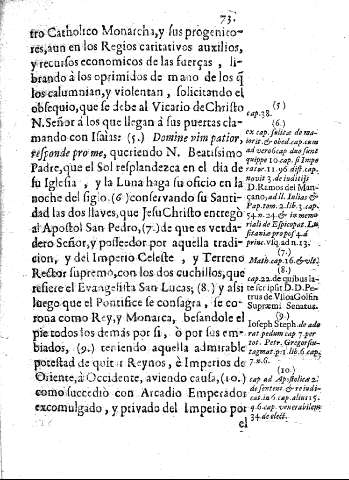 73.
tro Catholico Monarcha, y sus progenito-
res, aun en los Regios caritativos auxilios,
y recursos economicos de las fuerças, li-
brando à los oprimidos de mano de los q̃
los calumnian, y violentan, solicitando el
obsequio, que se debe al Vicario de Christo
N. Señor à los que llegan à sus puertas cla-
mando con Isaìas: (5.) Domine vim patior,
responde pro me, queriendo N. Beatissimo
Padre, que el Sol resplandezca en el dia de
su Iglesia, y la Luna haga su oficio en la
noche del siglo. (6) conservando su Santi-
dad las dos llaves, que Jesu Christo entregò
al Apostol San Pedro, (7.) de que es verda-
dero Señor, y posseedor por aquella tradi-
cion, y del Imperio Celeste, y Terreno
Rector supremo, con los dos cuchillos, que
refiere el Evangelista San Lucas; (8.) y assi
luego que el Pontifice se consagra, se co-
rona como Rey, y Monarca, besandole el
pie todos los demàs por si, ò por sus em-
biados, (9.) teniendo aquella admirable
potestad de quitar Reynos, è Imperios de
Oriente, à Occidente, aviendo causa, (10.)
como sucediò con Arcadio Emperador
excomulgado, y privado del Imperio por
el
(5)
cap. 38.
(6.)
ex cap. solitæ de ma-
iorit. & obed. cap. cum
ad vero 6 cap duo sunt
quippe 10. cap. si Impe
rator. 11. 96 dist. cap.
novit 3. de iudiciis
D. Ramos del Man-
çano, ad ll. Iulias &
Pap. tom. 2. lib. 3. cap.
54. n. 24. & in memo
riali de Episcopat. Lu
sitaniæ propos 4. à
princ. vsq. ad n. 13.
(7.)
Math. cap. 16. & vlt.
(8.)
cap. 22. de quibus la-
te scripsit D. D. Pe-
trus de Villoa Golfin
Supræmi Senatus.
(9.)
Ioseph Steph. de ado
rat pedum cap 7. per
tot. Petr. Gregor. syn-
tagmat. p. 1. lib 6. cap.
7. n. 6.
(10.)
cap ad Apostolicæ 2.
de sentent & re iudi-
cat. in 6 cap. alius 15.
q. 6. cap venerabilem
34. de elect.